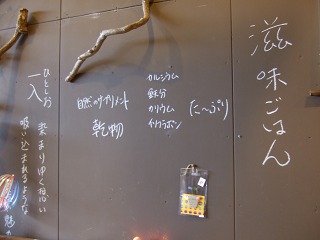 滋味ごはん
カルシウム
鉄分
カリウム
イソフラボン
た〜ぷり
自然のサプリメント
乾物
ひとしお
一入
染まりゆく思い
吸い込まれるような